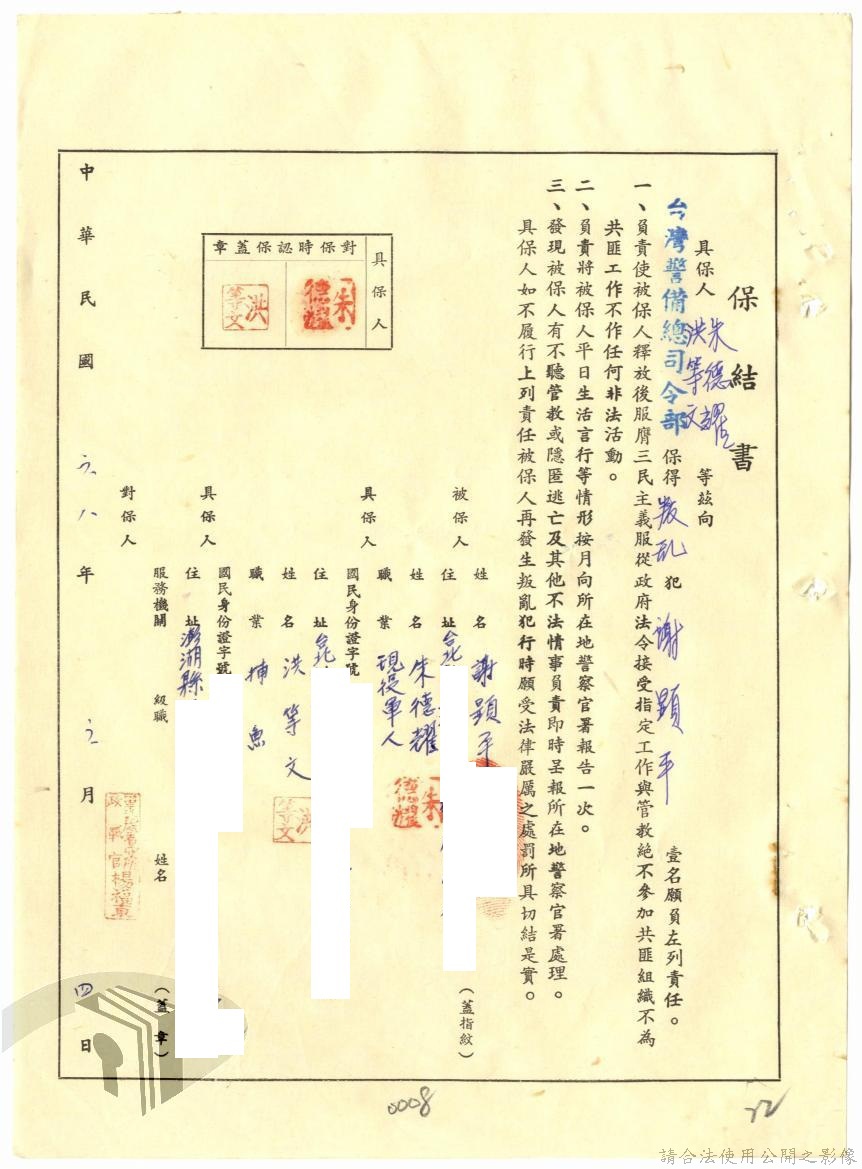 保結書
具保人 朱德耀 洪等文 等茲向
台灣警備總司令部 保得 叛乱 犯 謝顕平 壹名願負左列責任。
一、負責使被保人釋放後服膺三民主義服從政府法令接受指定工作與管教絕不參加共匪組織不為
共匪工作不作任何非法活動。
二、負責將被保人平日生活言行等情形按月向所在地警察官署報告一次。
三、發現被保人有不聽管教或隱匿逃亡及其他不法情事負責即時呈報所在地警察官署處理。
具保人如不履行上列責任被保人再發生叛亂犯行時願受法律嚴厲之處罰所具切結是實。
被保人 姓名 謝顕平 (蓋指紋)
住址 台北
具保人 姓名 朱德耀
朱德耀
職業 現役軍人
國民身份證字號
住址 台北
具保人 姓名 洪等文
洪等文
職業 捕魚
國民身份證字號
住址 澎湖縣
對保人 服務機關 級職 姓名 (蓋章)
具保人
對保時認保蓋章
朱德耀
洪等文
中華民國 六八 年 元 月 四 日
0008
22
請合法使用公開之影像